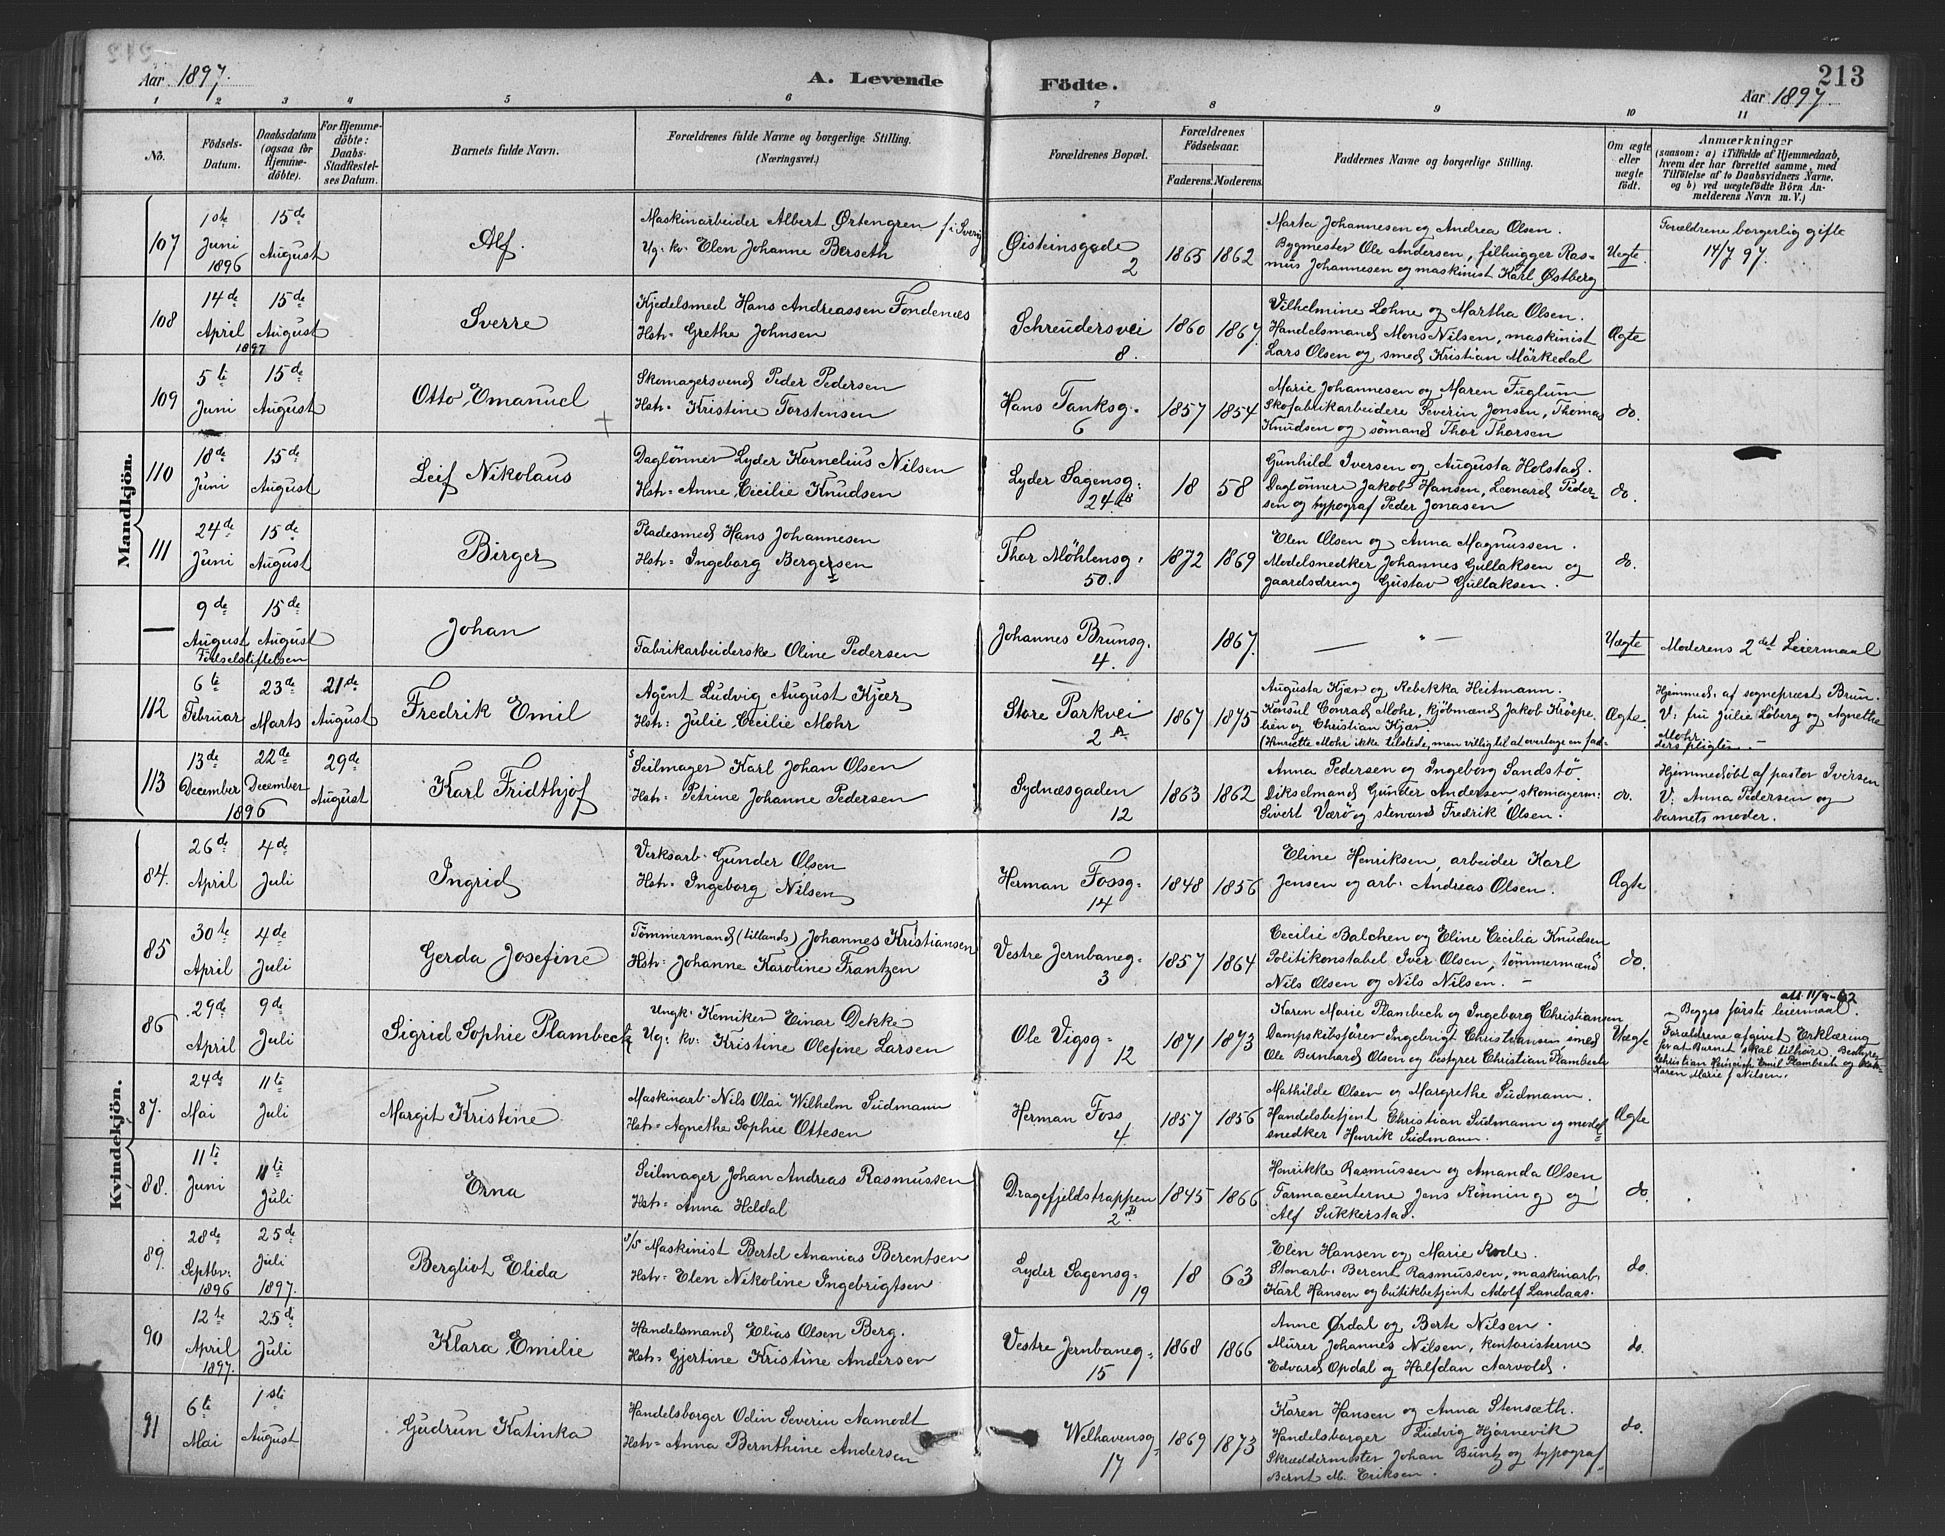 213
Aar 1897.
A. Levende
Födte.
Aar 1897.
1 2 3 4 5 6 7 8 9 10 11
No.
Födsels-
Datum.
Daabsdatum
(ogsaa for
Hjemme-
döbte).
For Hjemme-
döbte:
Daabs-
Stadfæstel-
ses Datum.
Barnets fulde Navn.
Forældrenes fulde Navne og borgerlige Stilling.
(Næringsvei.)
Forældrenes Bopæl.
Forældrenes
Födselsaar.
Faderens. Moderens.
Faddernes Navne og borgerlige Stilling.
Om ægte
eller
uægte
födt.
Anmærkninger
(saasom: a) i Tilfælde af Hjemmedaab,
hvem der har forrettet samme, med
Tilföielse af to Daabsvidners Navne.
og b) ved uægtefödte Börn An-
melderens Navn m. V.)
Mandkjön.
107
1ste
Juni
1896
15de
August
Alf.
Maskinarbeider Albert Örtengren f. i Sverig
Ug. kv. Elen Johanne Berseth
Øisteinsgade
2
1865 1862
Marta Johannesen og Andrea Olsen.
Bygmester Ole Andersen, filhugger Ras-
mus Johannesen og maskinist Karl Østberg
Uegte.
Forældrene borgerlig gifte
14/7 97.
108
14de
April
1897
15de
August
Sverre
Kjedelsmed Hans Andreassen Fondenæs
Hstr. Grethe Johnsen
Schreudersvei
8.
1860 1867.
Vilhelmine Lohne og Martha Olsen.
Handelsmand Mons Nilsen, maskinist
Lars Olsen og smed Kristian Mörkedal
Ægte
109
5te
Juni
15de
August
Otto Emanuel
Skomagersvend Peder Pedersen
Hstr. Kristine Torstensen
Hans Tanksg.
6
1857 1854
Marie Johannesen og Maren Fuglum
Skofabrikarbeidere Severin Jonsen, Thomas
Knudsen og sömand Thor Thorsen
do.
110
18de
Juni
15de
August
Leif Nikolaus
Daglönner Lyder Kornelius Nilsen
Hstr. Anne Cecilie Knudsen
Lyder Sagensg.
24 B
18 58
Gunhild Iversen og Augusta Holstad.
Daglönnere Jakob Hansen, Leonard Peder-
sen og typograf Peder Jonasen
do.
111
24de
Juni
15de
August
Birger
Pladesmed Hans Johannesen
Hstr. Ingeborg Bergersen
Thor Möhlensg.
50.
1872 1869
Elen Olsen og Anna Magnussen.
Modelsnedker Johannes Gullaksen og
gaardsdreng Gustav Gullaksen.
do.
—
9de
August
Fødselsstiftelsen
15de
August
Johan
Fabrikarbeiderske Oline Pedersen
Johannes Brunsg.
4.
1867.
— " —
Uægte
Moderens 2det Leiermaal
112
6te
Februar
23de
Marts
21de
August
Fredrik Emil
Agent Ludvig August Kjær
Hstr. Julie Cecilie Mohr
Store Parkvei
2 A
1867 1875
Augusta Kjær og Rebekka Heitmann.
Konsul Conrad Mohr, kjöbmænd Jakob Kröepe-
lien og Christian Kjær.
(Henriette Mohr ikke tilstede, men villig til at overtage en fad-
Ægte.
Hjemmed. af sogneprest Brun.
V: fru Julie Löberg og Agnethe
Mohr
derspligter.
113
13de
December
22de
December
1896
29de
August
Karl Fridthjof
Seilmager Karl Johan Olsen
Hstr. Petrine Johanne Pedersen
Sydnæsgaden
12
1863 1862
Anna Pedersen og Ingeborg Sandstö.
Dikselmand Gunder Andersen, skomagerm.
Sivert Værö og steward Fredrik Olsen.
do.
Hjemmedöbt af pastor Iversen
V: Anna Pedersen og
barnets moder.
Kvindekjön.
84.
26de
April
4de
Juli
Ingrid
Verksarb. Gunder Olsen
Hstr. Ingeborg Nilsen
Herman Fossg.
14
1848 1856
Eline Henriksen, arbeider Karl
Jensen og arb. Andreas Olsen.
Ægte
85
30te
April
4de
Juli
Gerda Josefine
Tömmermand (tillands) Johannes Kristiansen
Hstr. Johanne Karoline Frantzen
Vestre Jernbaneg.
3
1857 1864
Cecilie Balchen og Eline Cecilia Knudsen
Politikonstabel Iver Olsen, tömmermænd
Nils Olsen og Nils Nilsen. —
do.
86
29de
April
9de
Juli
Sigrid Sophie Plambeck
Ungk. Kemiker Einar Dekke
Ug. kv. Kristine Olefine Larsen
Ole Vigsg.
12
1871 1873
Karen Marie Plambech og Ingeborg Christiansen
Dampskibsförer Ingebrigt Christiansen, smed
Ole Bernhard Olsen og bestyrer Christian Plambech
Uægte
Begges förste leiermaal.
Forældrene afgivet Erklæring
for at Barnet skal tilhöre Bestyrer
Christian Heinrich Emil Plambech og
Karen Marie f. Nilsen.
87.
24de
Mai
11te
Juli
Margit Kristine
Maskinarb. Nils Olai Wilhelm Sudmann
Hstr. Agnethe Sophie Ottesen
Herman Foss
4
1857 1856
Mathilde Olsen og Margrethe Sudmann.
Handelsbetjent Christian Sudmann og model-
snedker Henrik Sudmann.
Ægte
88.
11te
Juni
11te
Juli
Erna
Seilmager Johan Andreas Rasmussen
Hstr. Anna Heldal
Dragefjeldstrappen
2 D
1845 1866
Henrikke Rasmussen og Amanda Olsen
Farmaceuterne Jens Rönning og
Alf Sukkerstad.
do.
89.
28de
Septbr.
1896
25de
Juli
1897.
Bergliot Elida
D/S Maskinist Bertel Ananias Berentsen
Hstr. Elen Nikoline Ingebrigtsen
Lyder Sagensg.
19
18 63
Elen Hansen og Marie Rode.
Stenarb. Berent Rasmussen, maskinarb.
Karl Hansen og butikbetjent Adolf Landaas.
do.
90
12te
April
1897.
25de
Juli
Klara Emilie
Handelsmand Elias Olsen Berg.
Hstr. Gjertine Kristine Andersen
Vestre Jernbaneg.
15
1868 1866
Anne Ørdal og Berte Nilsen.
Murer Johannes Nilsen, kontoristerne
Edvard Opdal og Halfdan Aarvold.
do.
91
6te
Mai
1ste
August
Gudrun Katinka
Handelsborger Odin Severin Aamodt
Hstr. Anna Bernthine Andersen
Welhavensg.
17
1869 1873
Karen Hansen og Anna Stensæth.
Handelsborger Ludvig Hjörnevik
Skræddermester Johan Buntz og typograf
Bernt M. Eriksen.
do.